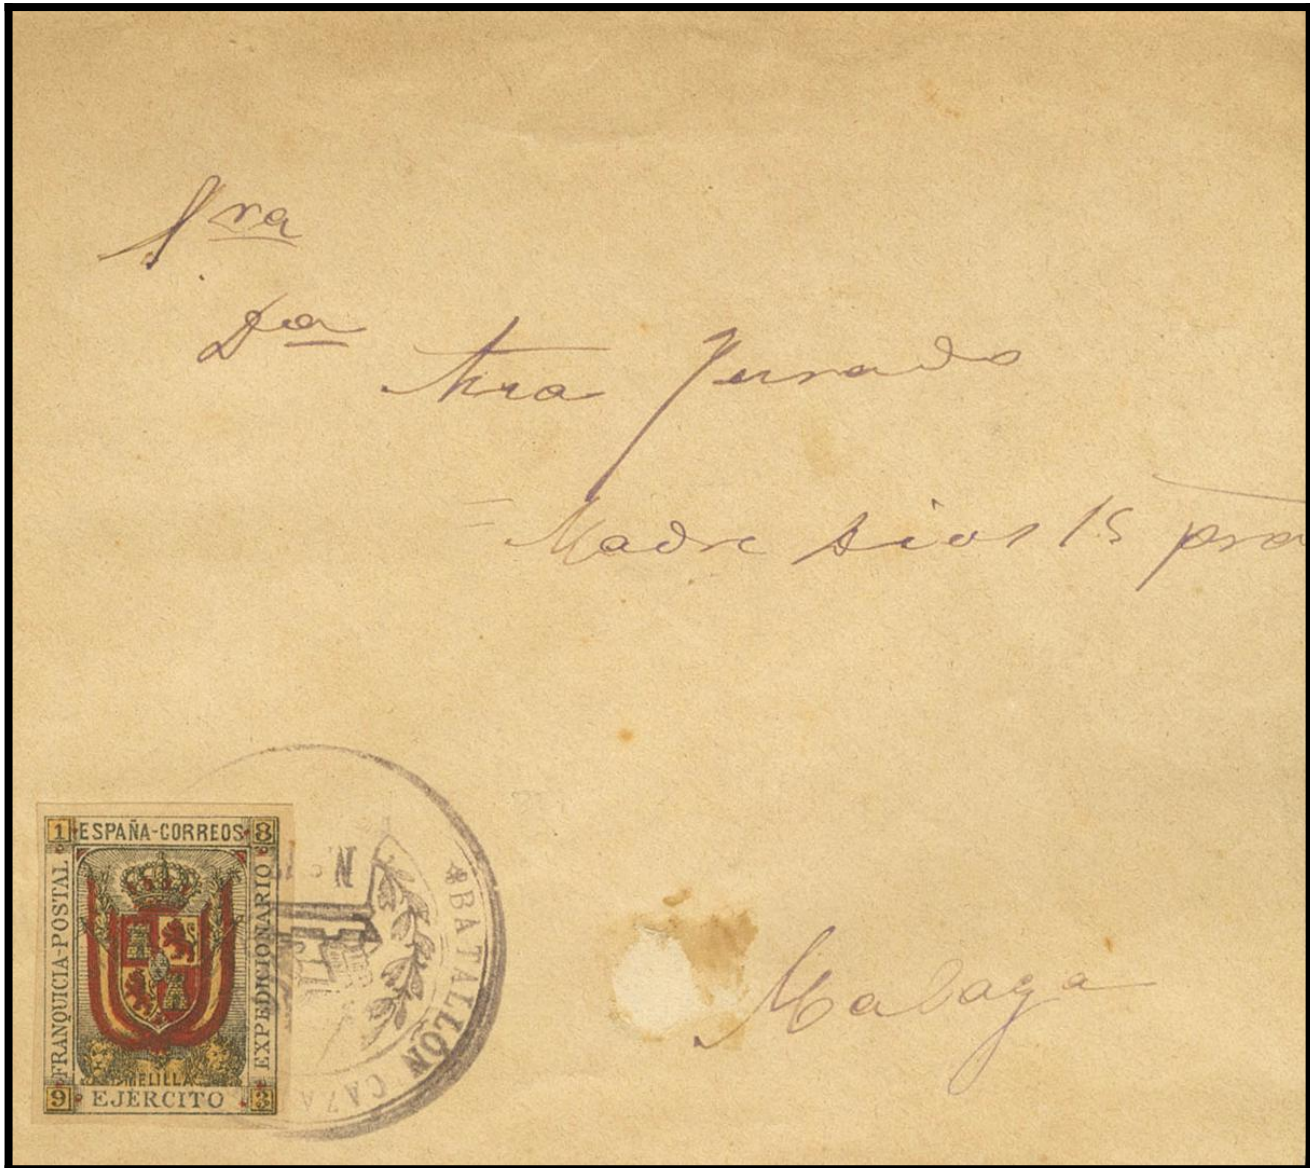 Sra
Da Ana Jurado
= Madre Dios 15 pra
Malaga
1 ESPAÑA-CORREOS 8
FRANQUICIA-POSTAL
EXPEDICIONARIO
MELILLA
9 EJÉRCITO 3
BATALLÓN CAZA